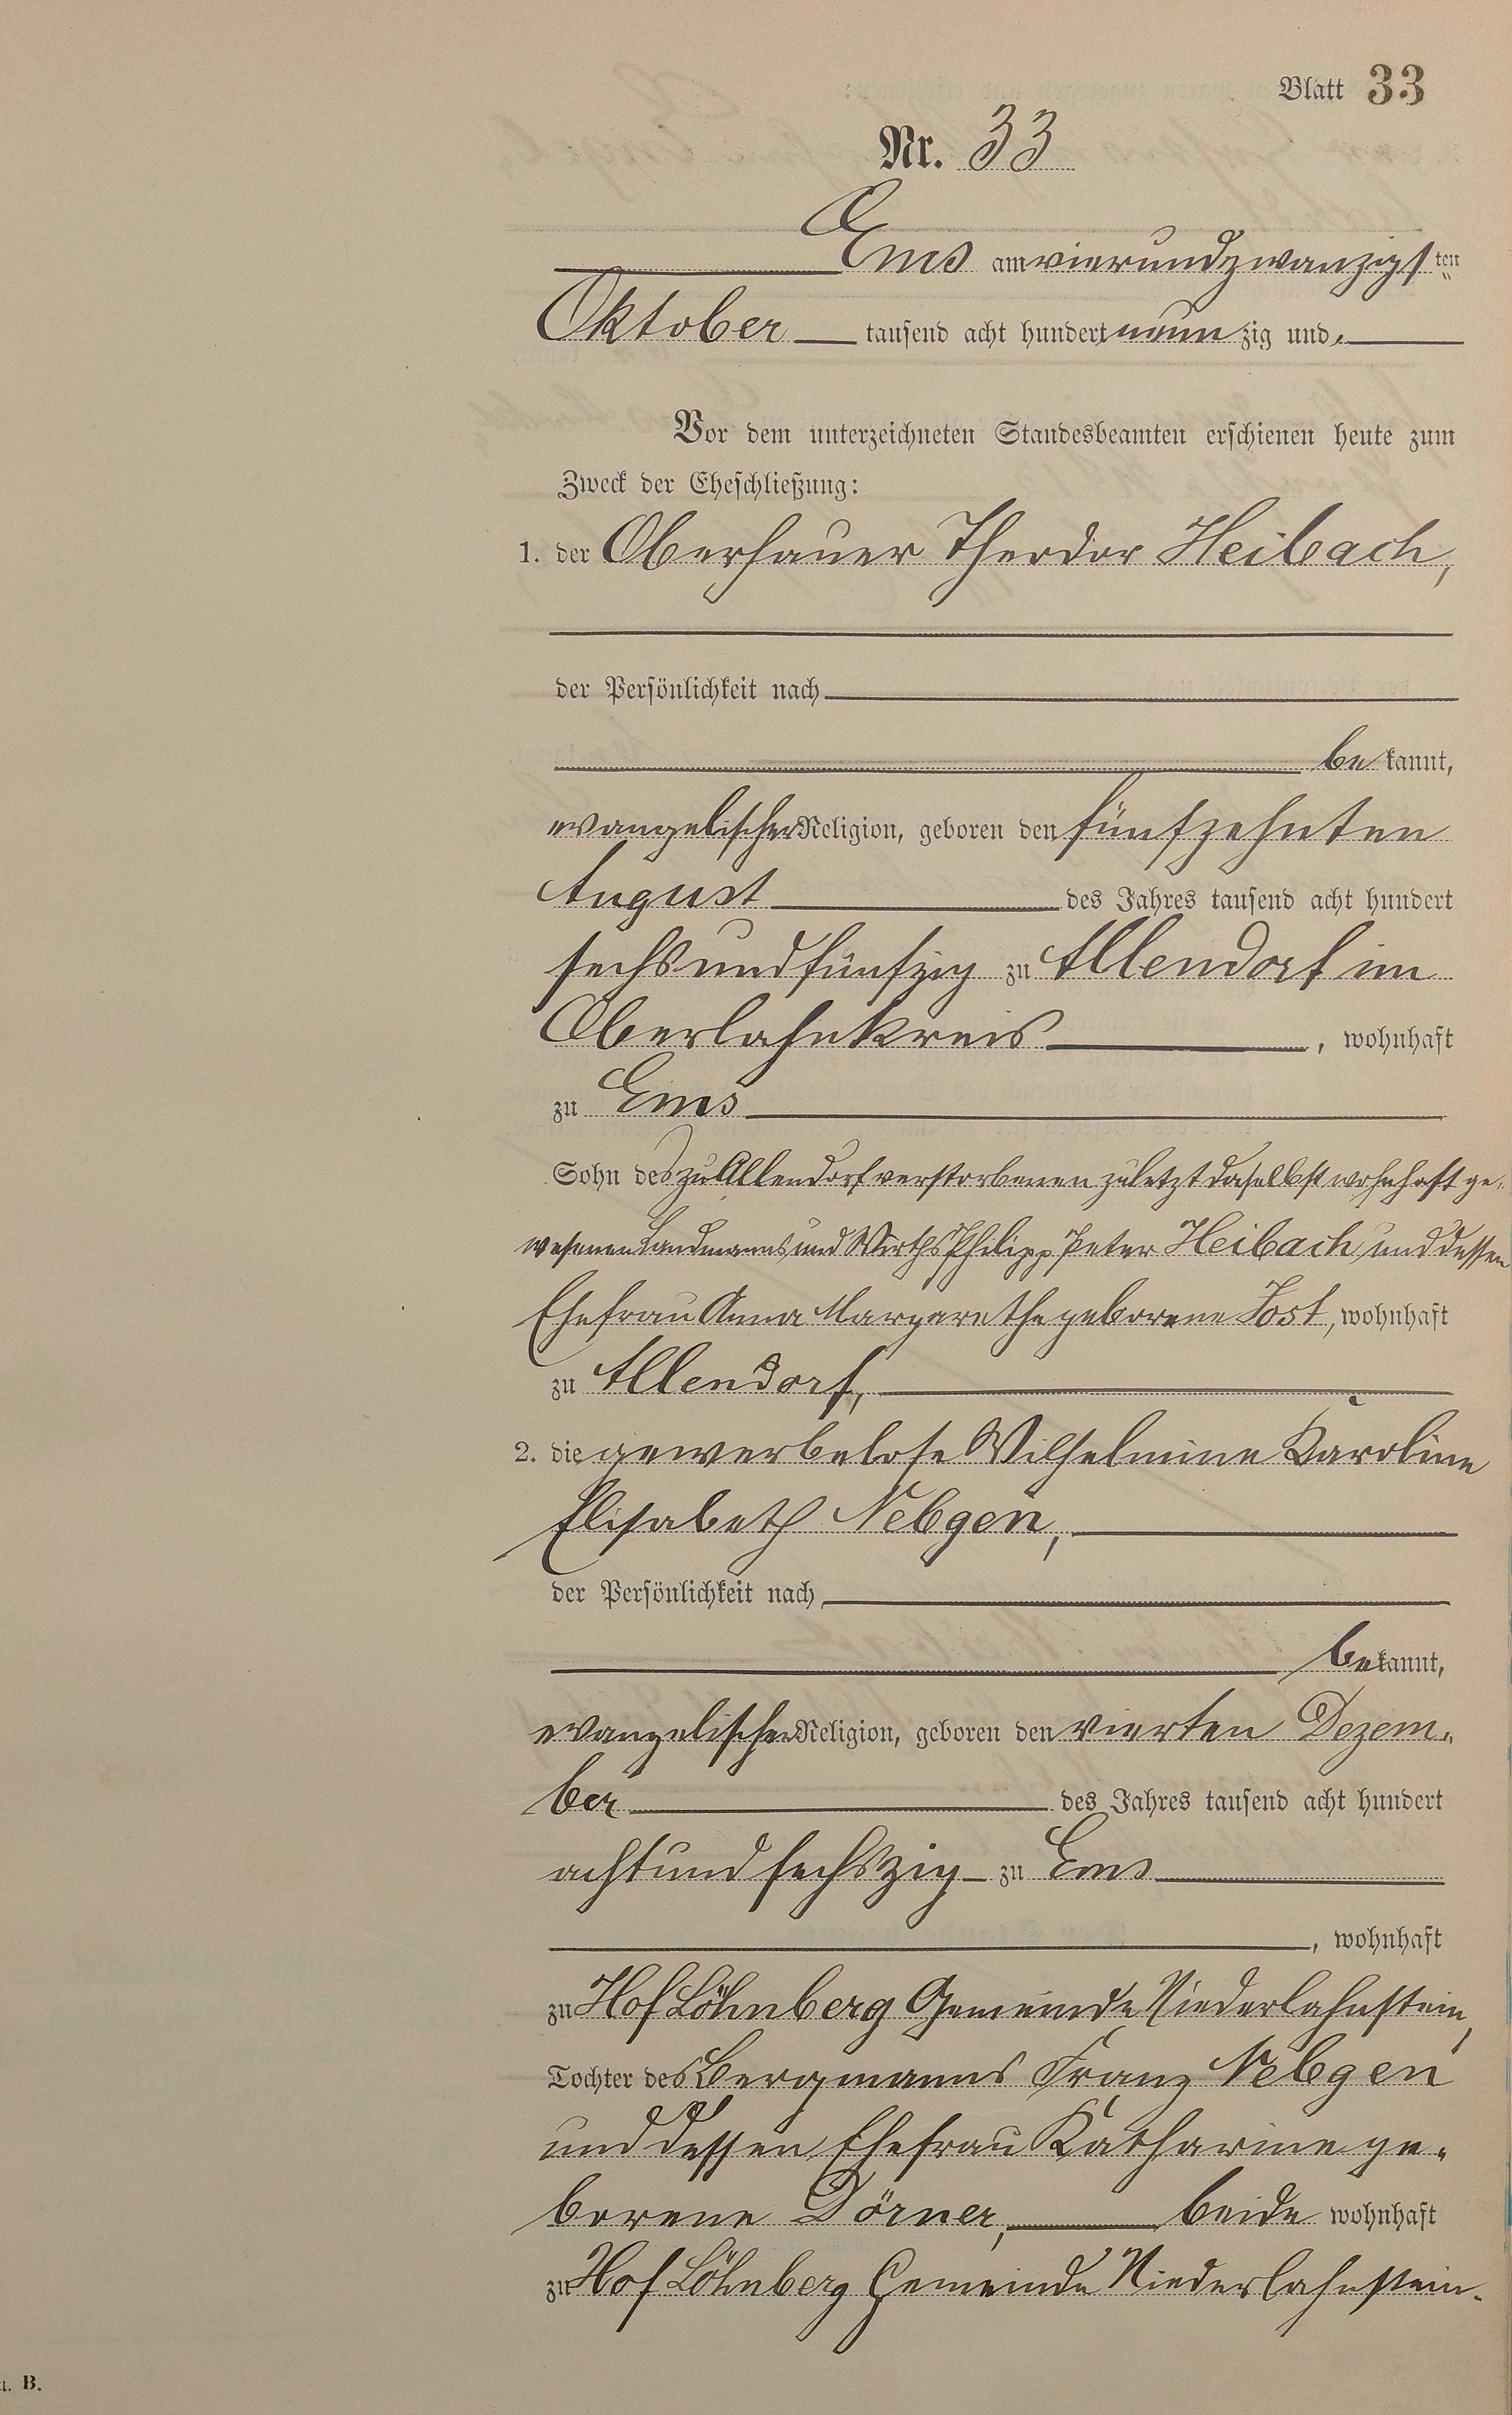 Blatt 33
Nr. 33
Ems am vierundzwanzigsten
Oktober tausend acht hundert neunzig und
Vor dem unterzeichneten Standesbeamten erschienen heute zum
Zweck der Eheschließung:
1. der Oberhauer Theodor Heibach,
der Persönlichkeit nach
bekannt,
evangelischer Religion, geboren den fünfzehnten
August des Jahres tausend acht hundert
sechsundfünfzig zu Allendorf im
Oberlahnkreis, wohnhaft
zu Ems
Sohn des zu Allendorf verstorbenen zuletzt daselbst wohnhaft ge-
wesenen Landmanns und Wirths Philipp Peter Heibach und dessen
Ehefrau Anna Margarethe geborene Jost, wohnhaft
zu Allendorf,
2. die gewerbelose Wilhelmine Karoline
Elisabeth Nebgen,
der Persönlichkeit nach
bekannt,
evangelischer Religion, geboren den vierten Dezem-
ber des Jahres tausend acht hundert
achtundsechszig zu Ems
, wohnhaft
zu Hof Löhnberg Gemeinde Niederlahnstein,
Tochter des Bergmanns Franz Nebgen
und dessen Ehefrau Katharine ge-
borene Dörner, beide wohnhaft
zu Hof Löhnberg Gemeinde Niederlahnstein.
B.